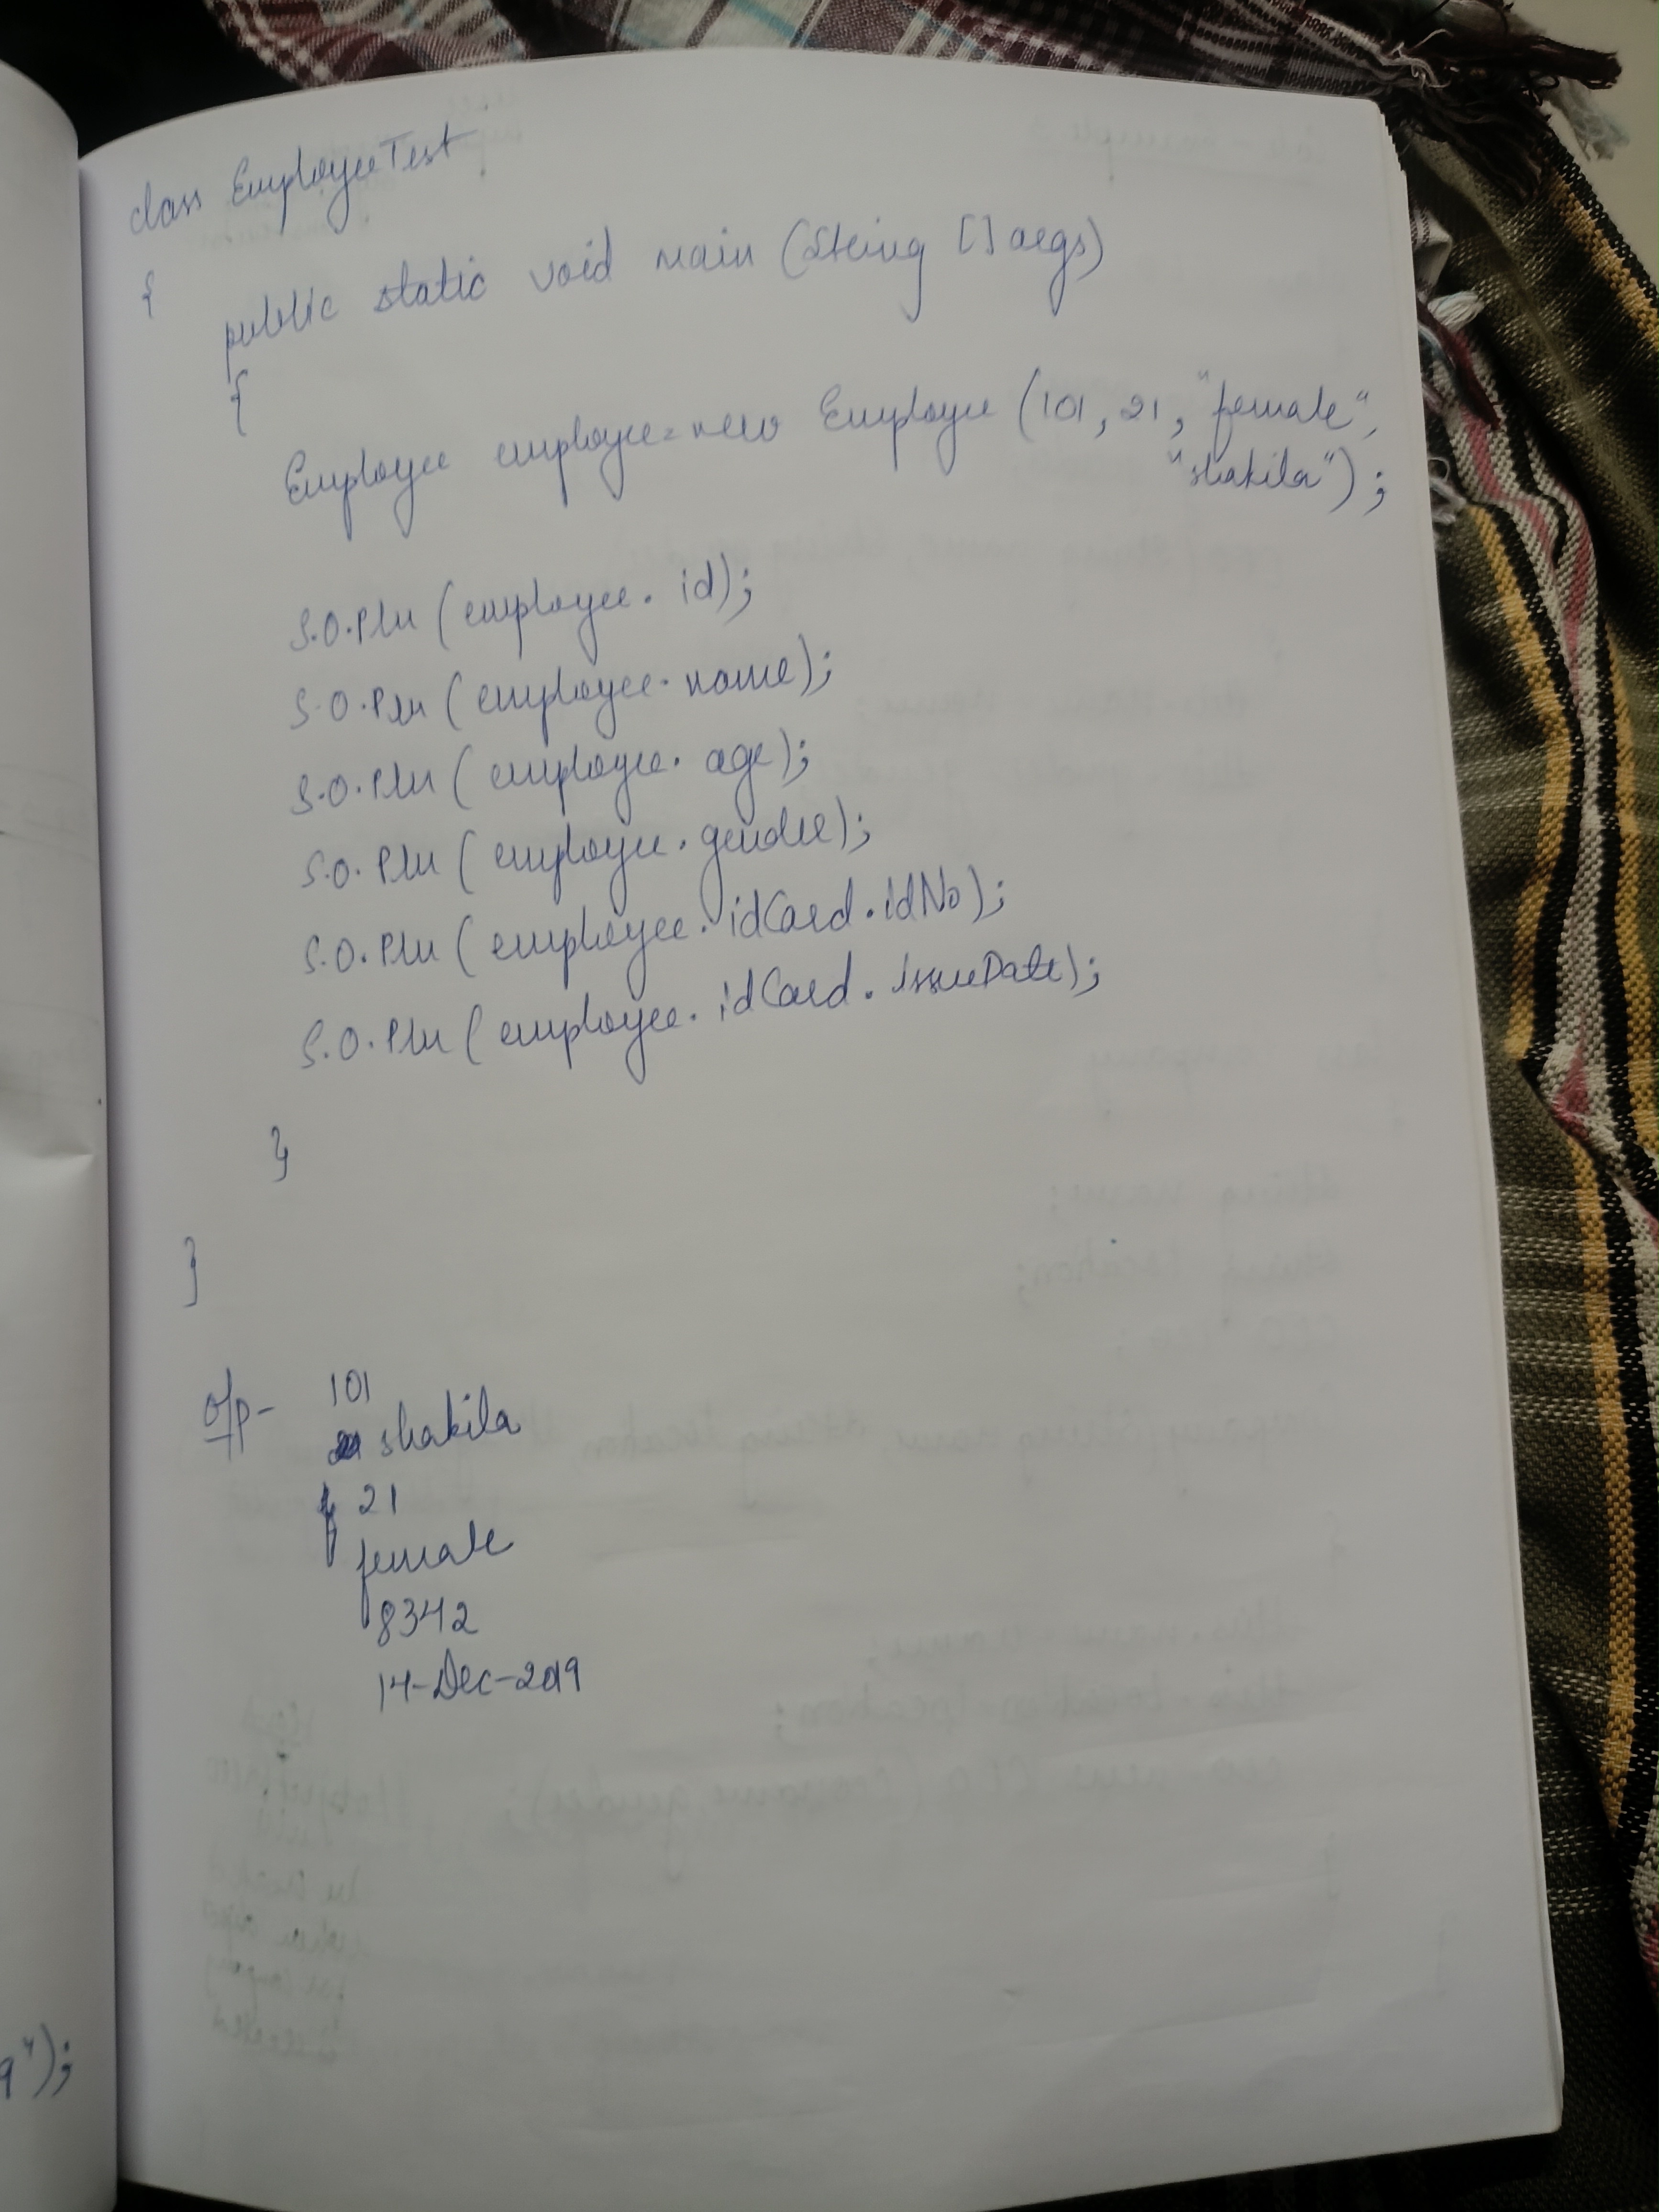 class EmployeeTest
{
public static void main (String [] args)
{
Employee employee = new Employee (101, 21, "female",
"shakila");
S.O.Pln (employee. id);
S.O.Pln (employee. name);
S.O.Pln (employee. age);
S.O.Pln (employee. gender);
S.O.Pln (employee. idCard. idNo);
S.O.Pln (employee. idCard. issueDate);
}
}
o/p- 101
shakila
21
female
8342
14-Dec-2019
9");